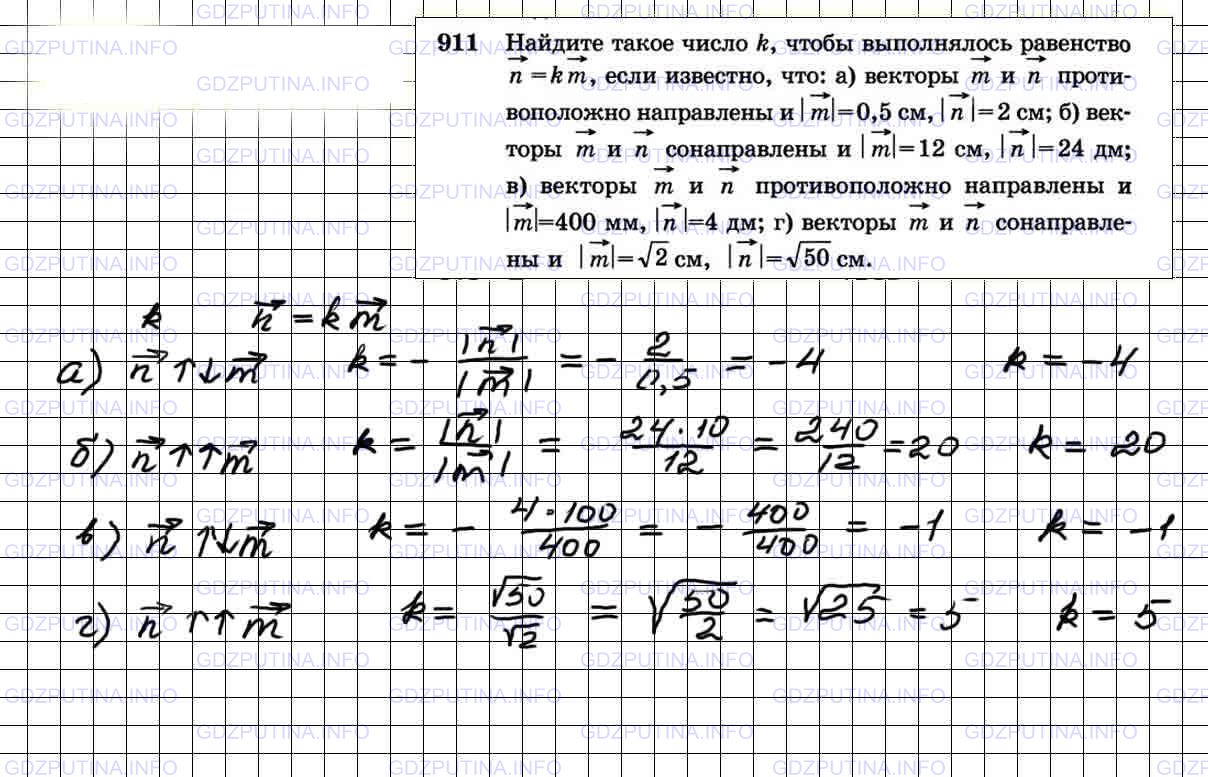 911 Найдите такое число k, чтобы выполнялось равенство
n⃗ = k m⃗, если известно, что: а) векторы m⃗ и n⃗ проти-
воположно направлены и |m⃗|=0,5 см, |n⃗|=2 см; б) век-
торы m⃗ и n⃗ сонаправлены и |m⃗|=12 см, |n⃗|=24 дм;
в) векторы m⃗ и n⃗ противоположно направлены и
|m⃗|=400 мм, |n⃗|=4 дм; г) векторы m⃗ и n⃗ сонаправле-
ны и |m⃗|=√2 см, |n⃗|=√50 см.
k n⃗ = k m⃗
а) n⃗ ↑↓ m⃗ k = - |n⃗|/|m⃗| = - 2/0,5 = -4 k = -4
б) n⃗ ↑↑ m⃗ k = |n⃗|/|m⃗| = 24·10/12 = 240/12 = 20 k = 20
в) n⃗ ↑↓ m⃗ k = - 4·100/400 = - 400/400 = -1 k = -1
г) n⃗ ↑↑ m⃗ k = √50/√2 = √(50/2) = √25 = 5 k = 5
GDZPUTINA.INFO